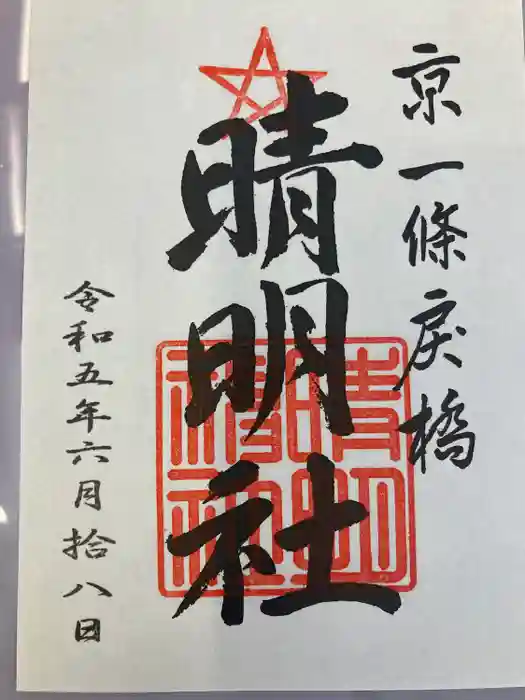 京一條戻橋
晴明社
令和五年六月拾八日